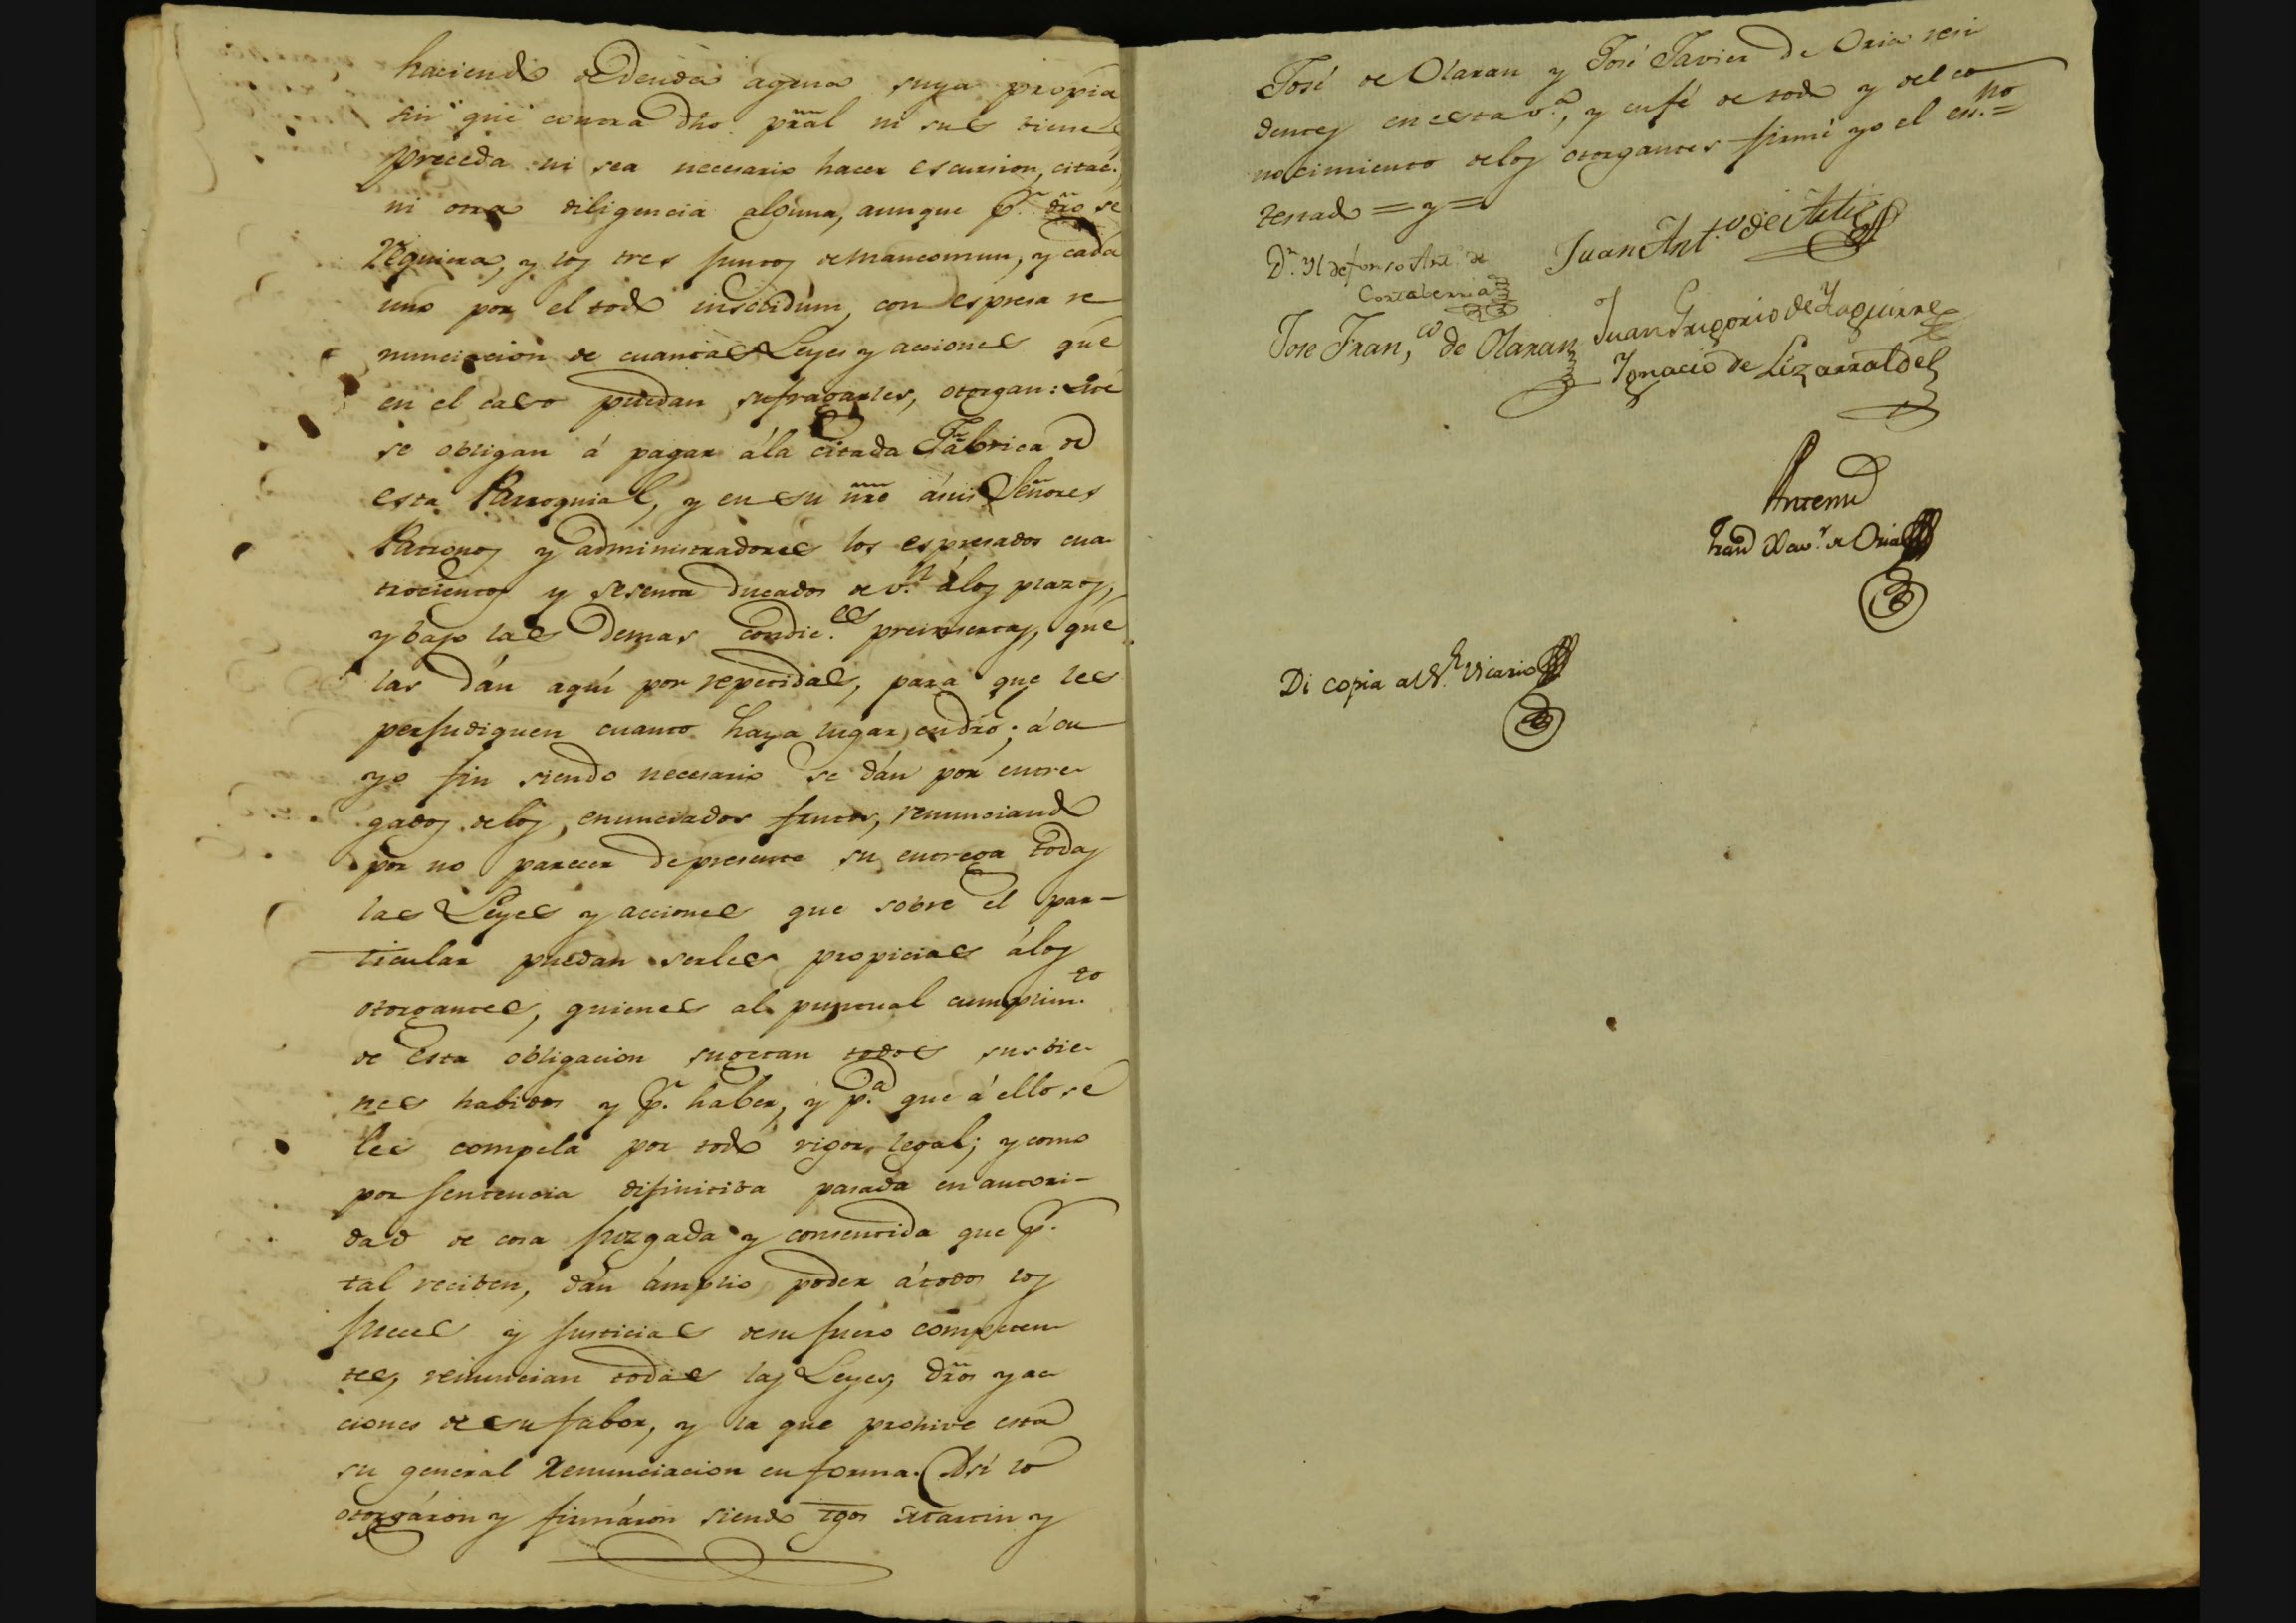 haciendo de deuda agena suya propia
sin que contra dho. pral ni sus bienes
preceda ni sea necesario hacer escursion, citac.
ni otra diligencia alguna, aunque pr. dro se
requiera, y los tres juntos de mancomun, y cada
uno por el todo insolidum, con espresa re
nunciacion de cuantas Leyes y acciones que
en el caso puedan sufragarles, otorgan: que
se obligan á pagar ála citada Fábrica de
esta Parroquial, y en su nre ásus Señores
Patronos y administradores los espresados cua
trocientos y sesenta ducados de v.n álos plazos,
y bajo las demas condic.es preinsertas, que
las dán aquí por repetidas, para que les
perjudiquen cuanto haya lugar en dro; á cu
yo fin siendo necesario se dán por entre
gados delos enunciados frutos, renunciando
por no parecer depresente su entrega todas
las Leyes y acciones que sobre el par-
ticular puedan serles propicias álos
otorgantes, quienes al puntual cumplim.to
de esta obligacion sugetan todos sus bie
nes habidos y pr. haber, y p.a que á ello se
les compela por todo rigor legal; y como
por sentencia difinitiba pasada en autori-
dad de cosa juzgada y consentida que pr.
tal reciben, dán ámplio poder átodos los
Jueces y Justicias desu fuero competen
tes, renuncian todas las Leyes, dros y ac
ciones de su fabor, y la que prohive esta
su general Renunciacion en forma. Asi lo
otorgáron y firmáron siendo tgos Martin y
José de Olaran y José Javier de Oria resi
dentes en esta v.a, y en fé de todo y del co
nocimiento delos otorgantes firmé yo el en.no =
testado = y =
Dn. Yldefonso Ant. de
Cortaberria
Juan Ant.o de
Jose Fran,co de Olaran
Juan Gregorio de Yzaguirre
Ignacio de Lizarralde
Antemi
Fran Xav.r de Oria
Di copia al S.r Vicario